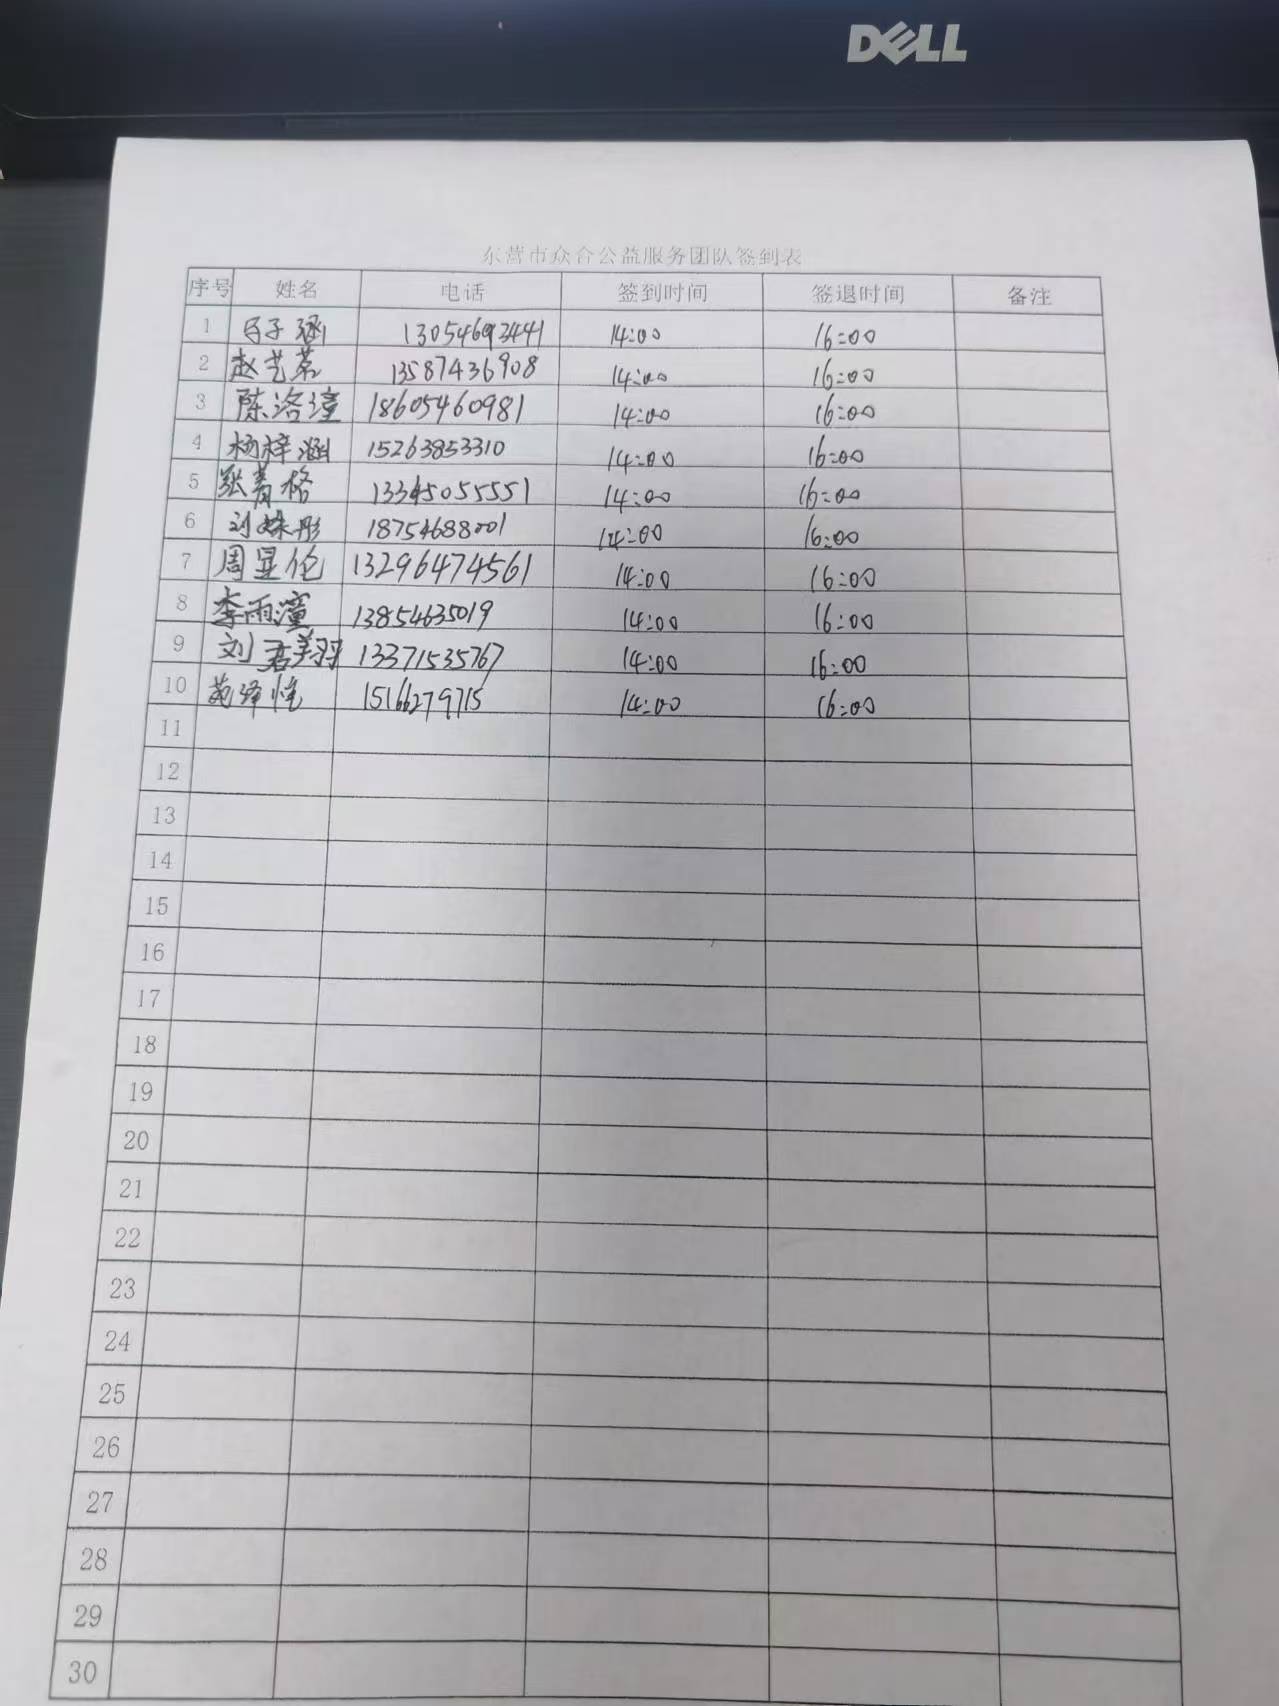 DELL
东营市众合公益服务团队签到表
序号 姓名 电话 签到时间 签退时间 备注
1 马子涵 13054692441 14:00 16:00
2 赵艺茗 13587436908 14:00 16:00
3 陈洛潼 18605460981 14:00 16:00
4 杨梓涵 15263853310 14:00 16:00
5 张菁格 13345055551 14:00 16:00
6 刘姝彤 18754688001 14:00 16:00
7 周显伦 13296474561 14:00 16:00
8 李雨潼 13854635019 14:00 16:00
9 刘君羽 13371535767 14:00 16:00
10 苑泽惟 15166279715 14:00 16:00
11
12
13
14
15
16
17
18
19
20
21
22
23
24
25
26
27
28
29
30